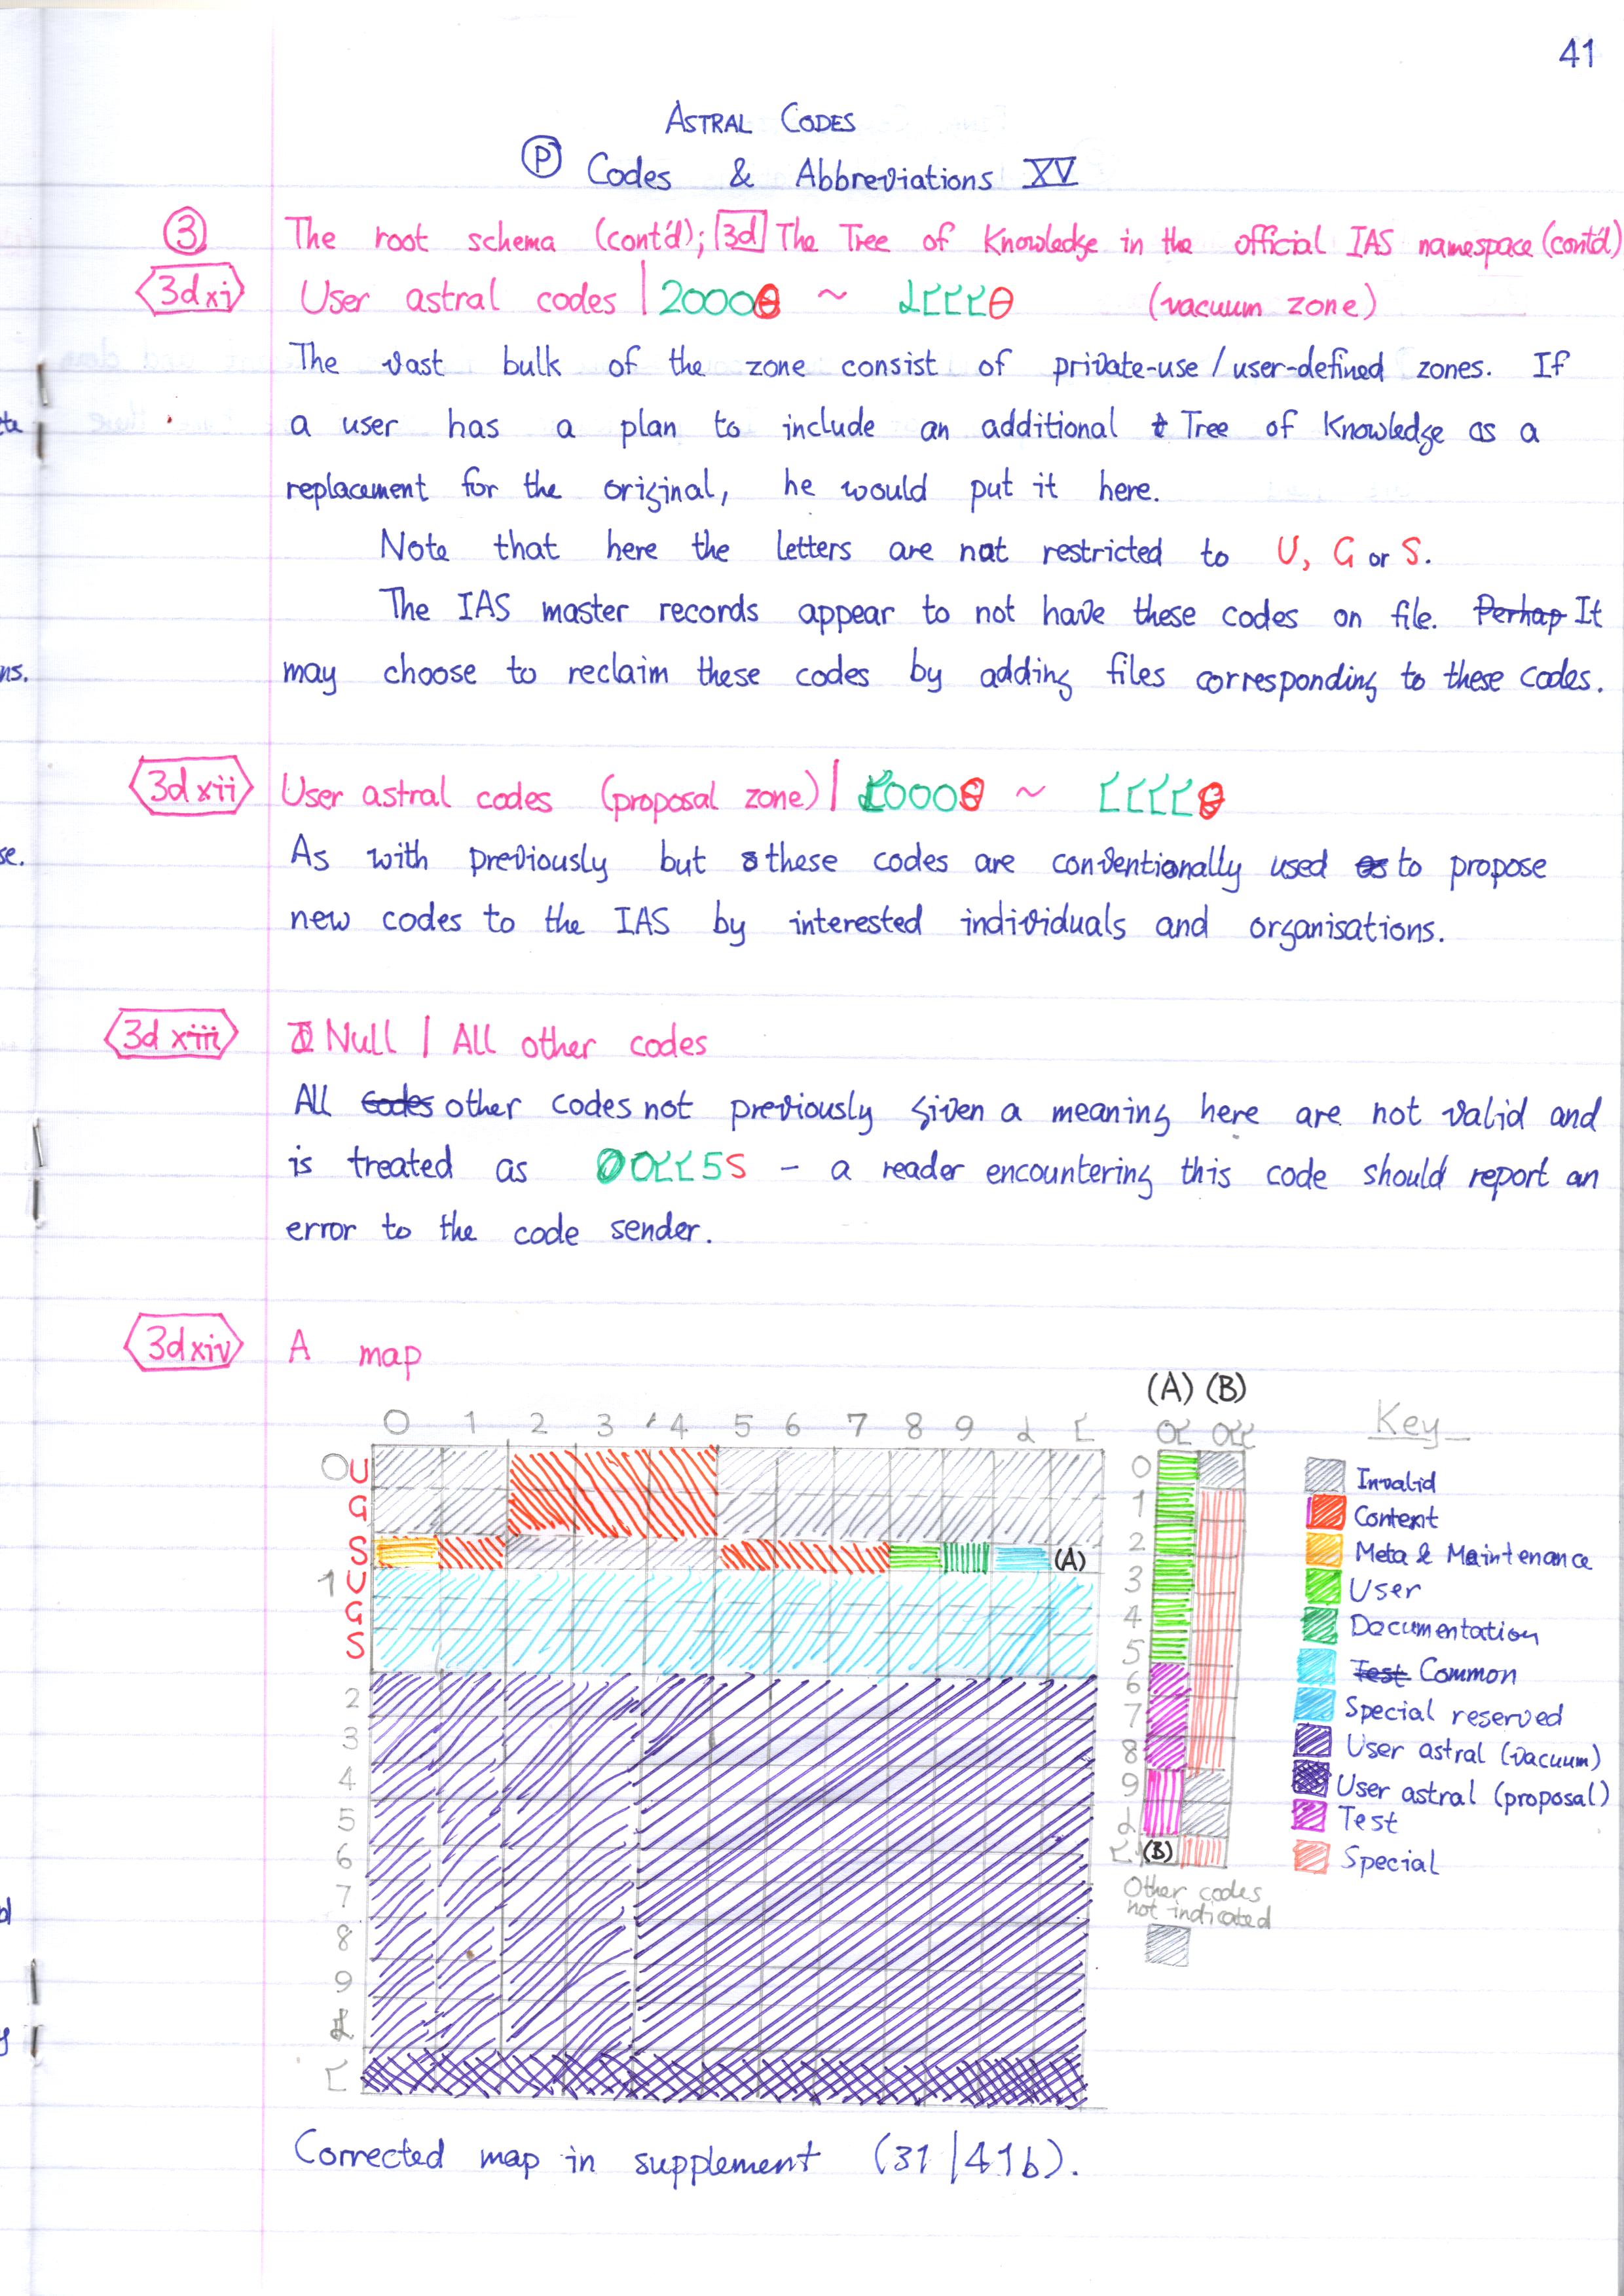 41
ASTRAL CODES
Ⓟ Codes & Abbreviations XV
③ The root schema (cont'd); 3d The Tree of Knowledge in the official IAS namespace (cont'd)
3dxi User astral codes | 2000θ ~ ↊↋↋↋θ (vacuum zone)
The vast bulk of the zone consist of private-use / user-defined zones. If
a user has a plan to include an additional t Tree of Knowledge as a
replacement for the original, he would put it here.
Note that here the letters are not restricted to U, G or S.
The IAS master records appear to not have these codes on file. Perhap It
may choose to reclaim these codes by adding files corresponding to these codes.
3dxii User astral codes (proposal zone) | ↋000θ ~ ↋↋↋↋θ
As with previously but these codes are conventionally used as to propose
new codes to the IAS by interested individuals and organisations.
3dxiii Null | All other codes
All codes other codes not previously given a meaning here are not valid and
is treated as 00↋↋5S – a reader encountering this code should report an
error to the code sender.
3dxiv A map
(A) (B)
0 1 2 3 4 5 6 7 8 9 ↊ ↋
0↋ 0↋↋
Key
0 U
G
S
(A)
1 U
G
S
2
3
4
5
6
7
8
9
↊
↋
0
1
2
3
4
5
6
7
8
9
↊
↋
(B)
Other codes
not indicated
Invalid
Content
Meta & Maintenance
User
Documentation
Test Common
Special reserved
User astral (vacuum)
User astral (proposal)
Test
Special
Corrected map in supplement (31/41b).